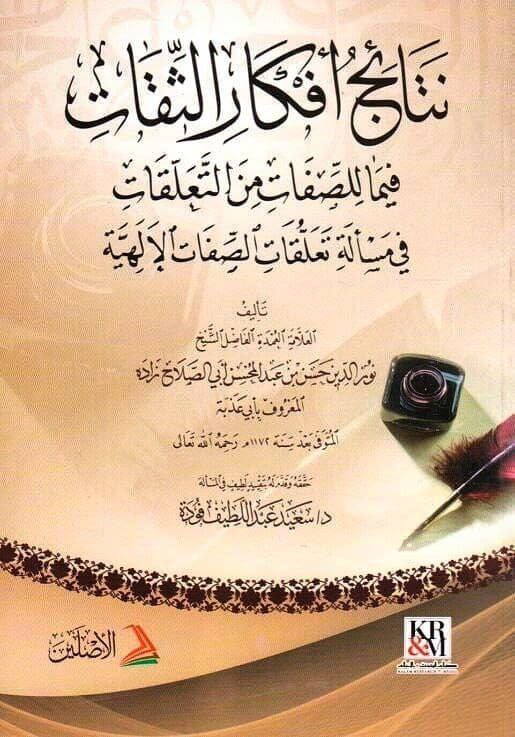 نَتَائِجُ أَفْكَارِ الثِّقَاتِ
فِيمَا لِلصِّفَاتِ مِنَ التَّعَلُّقَاتِ
فِي مَسْأَلَةِ تَعَلُّقَاتِ الصِّفَاتِ الإِلَهِيَّة
تَأليفُ
العَلَّامَةِ العُمْدَةِ الفَاضِلِ الشَّيْخِ
نُورِ الدِّينِ حَسَنِ بْنِ عَبْدِ المُحْسِنِ أَبِي الصَّلَاحِ زَادَه
المَعْرُوفِ بِأَبِي عَذْبَة
المُتَوَفَّى بَعْدَ سَنَةِ ١١٧٢م رَحِمَهُ اللهُ تَعَالَى
حَقَّقَهُ وَقَدَّمَ لَهُ بِتَقْيِيدٍ لَطِيفٍ فِي المَسْأَلَة
د/سَعِيد عَبْد اللَّطِيف فُودَة
الأصلين
KR
&M
KALAM RESEARCH & MEDIA